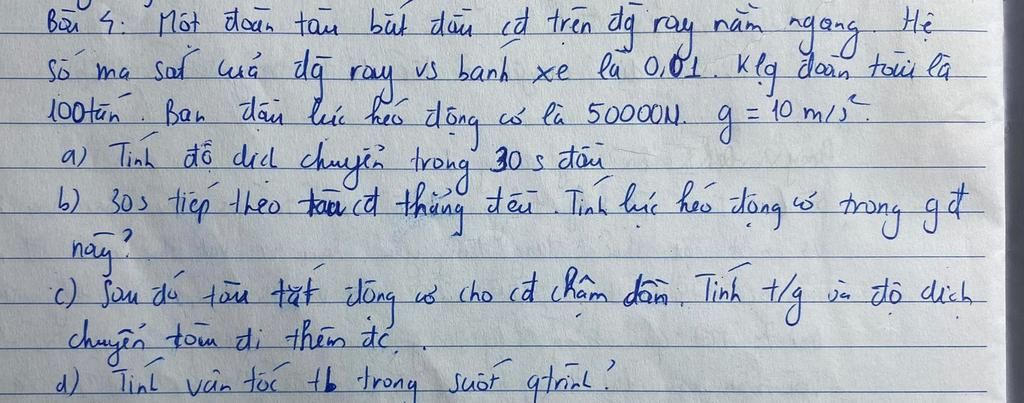 Bài 4: Một đoàn tàu bắt đầu cđ trên đg ray nằm ngang. Hệ
số ma sát của đg ray vs bánh xe là 0,01. Klg đoàn tàu là
100 tấn. Ban đầu lực kéo động cơ là 50000N. g = 10 m/s².
a) Tính độ dịch chuyển trong 30 s đầu
b) 30s tiếp theo tàu cđ thẳng đều. Tính lực kéo động cơ trong gđ
này?
c) Sau đó tàu tắt động cơ cho cđ chậm dần. Tính t/g và độ dịch
chuyển tàu đi thêm đc.
d) Tính vận tốc tb trong suốt qtrình?